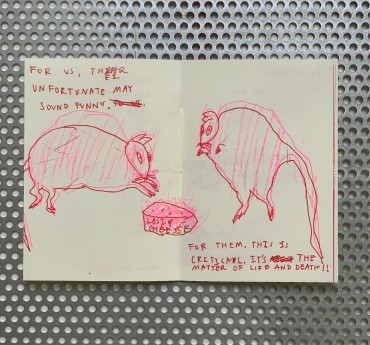 FOR US, THEIR
UNFORTUNATE MAY
SOUND FUNNY.
LAST
CHEESE
FOR THEM, THIS IS
CRITICAL, IT'S THE
MATTER OF LIFE AND DEATH!!